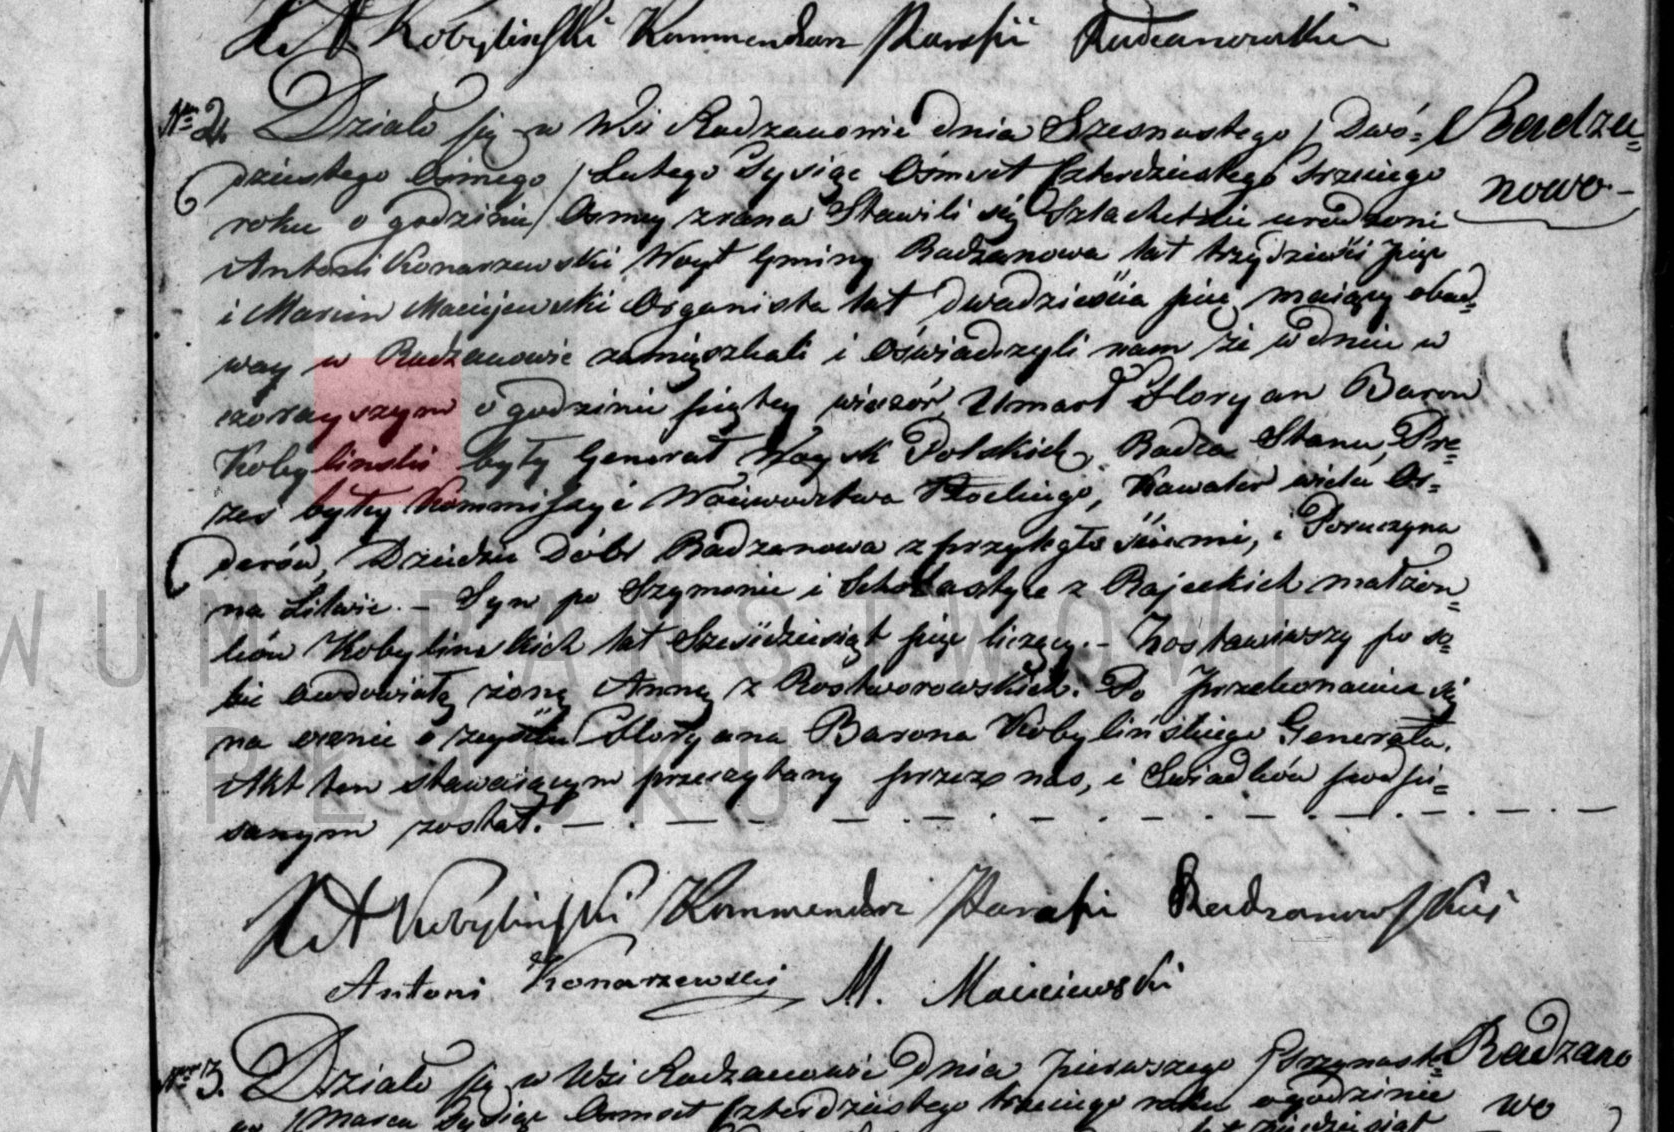 X A Kobylinski Kommendarz Parafii Radzanowskiey
Nro 2. Działo się w Wsi Radzanowie dnia Szesnastego / Dwó= Radza=
dziestego Ósmego / Lutego Tysiąc Ośmset Czterdziestego Trzeciego nowo -
roku o godzinie Ósmey zrana Stawili się Szlachetnie urodzeni
Antoni Konarzewski Woyt Gminy Radzanowa lat trzydzieści pięć
i Marcin Maciejewski Organista lat dwadzieścia pięć maiący obad=
way w Radzanowie zamięszkali i Oświadczyli nam że w dniu w
czorayszym o godzinie piątey wieczór, Umarł Floryan Baron
Kobylinski były Generał Woysk Polskich, Radca Stanu, Pre=
zes byłey Kommissyi Woiewodztwa Płockiego, Kawaler wielu Or=
derów, Dziedzic Dóbr Radzanowa z przyległościami, i Poruczyna
na Litwie. - Syn po Szymonie i Scholastyce z Rajeckich małżon=
ków Kobylinskich lat Sześćdziesiąt pięć liczący. - Zostawiwszy po so=
bie owdowiałą żonę Annę z Rostworowskich. Po przekonaniu się
na ocznie o zeyściu Floryana Barona Kobylińskiego Generała.
Akt ten stawaiącym przeczytany przez nas, i Swiadków podpi=
sanym został. - . - . - . - . - . - . - . -
X A Kobylinski Kommendarz Parafii Radzanowskiey
Antoni Konarzewski M. Maciejewski
Nro 3. Działo się w Wsi Radzanowie dnia pierwszego / Trzynaste= Radzano
go / Marca Tysiąc Ośmset Czterdziestego trzeciego roku o godzinie wo
WUM PAŃSTWOWE
W PŁOCKU